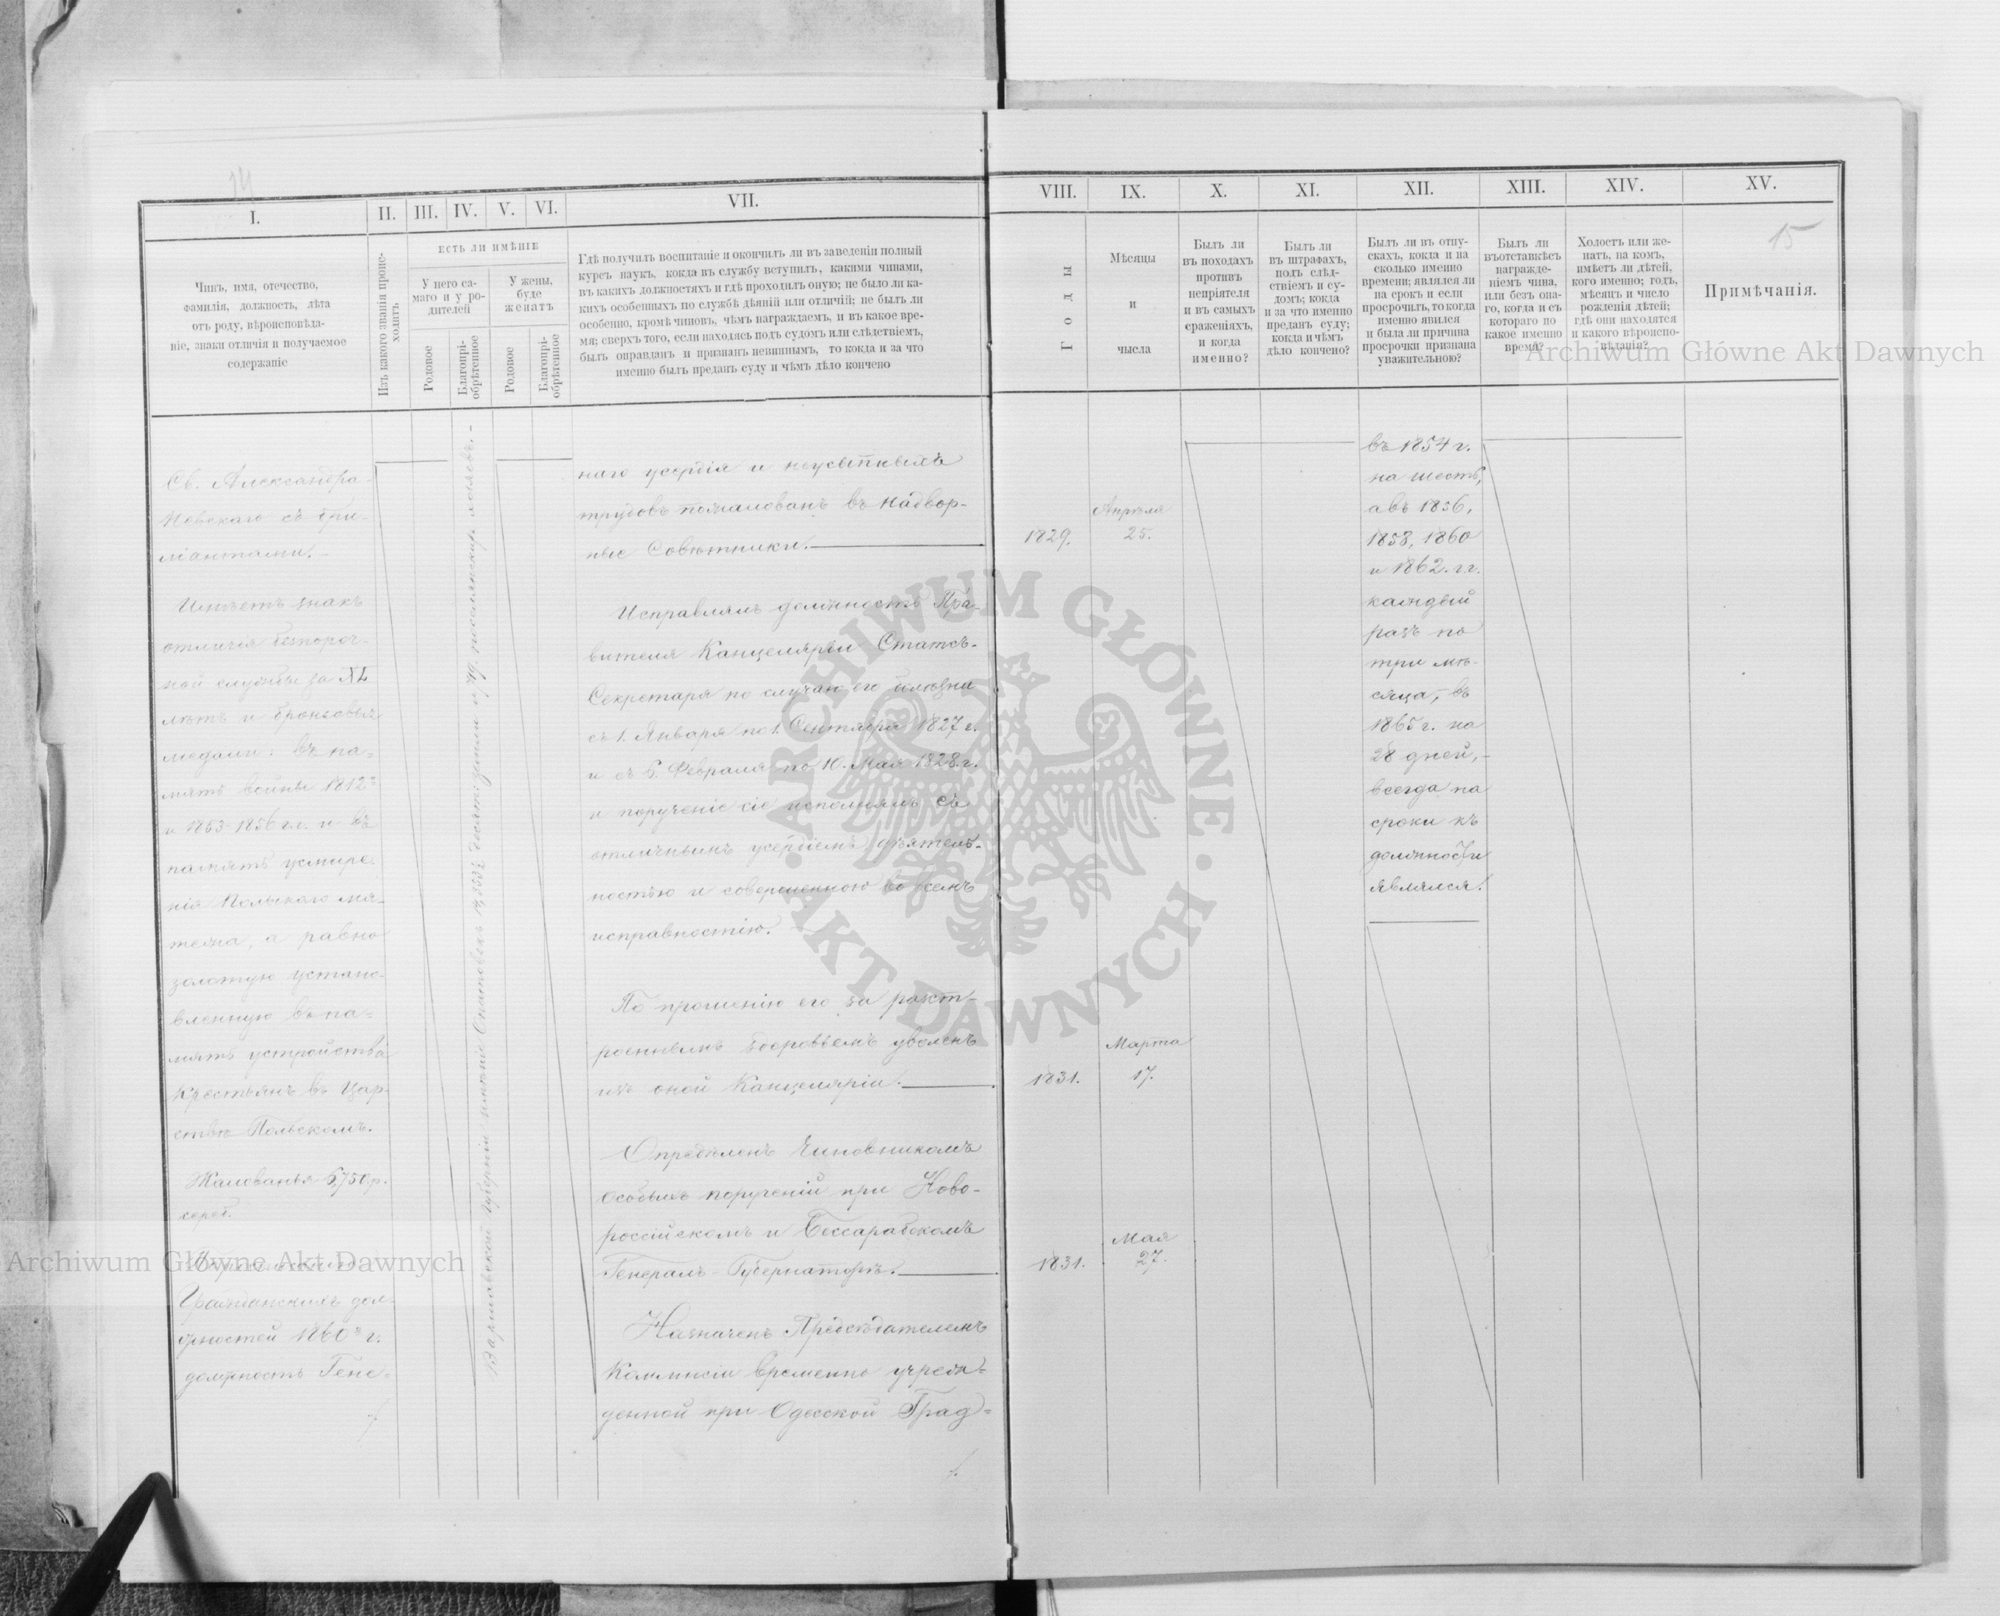 14
I.
II.
III.
IV.
V.
VI.
VII.
VIII.
IX.
X.
XI.
XII.
XIII.
XIV.
XV.
15
Чинъ, имя, отечество,
фамилія, должность, лѣта
отъ роду, вѣроисповѣда-
ніе, знаки отличія и получаемое
содержаніе
Изъ какого званія проис-
ходитъ
ЕСТЬ ЛИ ИМѢНІЕ
У него са-
маго и у ро-
дителей
У жены,
буде
женатъ
Родовое
Благопрі-
обрѣтенное
Родовое
Благопрі-
обрѣтенное
Гдѣ получилъ воспитаніе и окончилъ ли въ заведеніи полный
курсъ наукъ, когда въ службу вступилъ, какими чинами,
въ какихъ должностяхъ и гдѣ проходилъ оную; не было ли ка-
кихъ особенныхъ по службѣ дѣяній или отличій; не былъ ли
особенно, кромѣ чиновъ, чѣмъ награждаемъ, и въ какое вре-
мя; сверхъ того, если находясь подъ судомъ или слѣдствіемъ,
былъ оправданъ и признанъ невиннымъ, то когда и за что
именно былъ преданъ суду и чѣмъ дѣло кончено
Годы
Мѣсяцы
и
числа
Былъ ли
въ походахъ
противъ
непріятеля
и въ самыхъ
сраженіяхъ,
и когда
именно?
Былъ ли
въ штрафахъ,
подъ слѣд-
ствіемъ и су-
домъ; когда
и за что именно
преданъ суду;
когда и чѣмъ
дѣло кончено?
Былъ ли въ отпу-
скахъ, когда и на
сколько именно
времени; являлся ли
на срокъ и если
просрочилъ, то когда
именно явился
и была ли причина
просрочки признана
уважительною?
Былъ ли
въ отставкѣ съ
награжде-
ніемъ чина,
или безъ она-
го, когда и съ
котораго по
какое именно
время?
Холостъ или же-
натъ, на комъ,
имѣетъ ли дѣтей,
кого именно; годъ,
мѣсяцъ и число
рожденія дѣтей;
гдѣ они находятся
и какого вѣроиспо-
вѣданія?
Примѣчанія.
Св. Александра-
Невскаго съ бри-
ліантами.
Имѣетъ знакъ
отличія безпороч-
ной службы за XL
лѣтъ и бронзовыя
медали: въ па-
мять войны 1812 г.
и 1853-1856 г.г. и въ
память усмире-
нія Польскаго мя-
тежа, а равно
золотую устано-
вленную въ па-
мять устройства
крестьянъ въ Цар-
ствѣ Польскомъ.
Жалованья 6,750 р.
сереб.
Гражданскихъ дол-
жностей 1860 г.
должность Гене-
Варшавской губерніи имѣніе
наго усердія и неусыпныхъ
трудовъ пожалованъ въ Надвор-
ные Совѣтники.
1829.
Апрѣля
25.
Исправлялъ должность Пра-
вителя Канцеляріи Статсъ-
Секретаря по случаю его болѣзни
съ 1. Января по 1. Сентября 1827 г.
и съ 6. Февраля по 10. Мая 1828. г.
и порученіе сіе исполнялъ съ
отличнымъ усердіемъ, дѣятель-
ностью и совершенною во всемъ
исправностію.
По прошенію его за разст-
роеннымъ здоровьемъ уволенъ
изъ оной Канцеляріи.
1831.
Марта
17.
Опредѣленъ Чиновникомъ
особыхъ порученій при Ново-
россійскомъ и Бессарабскомъ
Генералъ-Губернаторѣ.
1831.
Мая
27.
Назначенъ Предсѣдателемъ
Коммисіи временно учреж-
денной при Одесской Град-
въ 1854 г.
на шесть,
а въ 1856,
1858, 1860
и 1862. г.г.
каждый
разъ по
три мѣ-
сяца, въ
1865 г. на
28 дней,
всегда на
сроки къ
должности
являлся.
Archiwum Główne Akt Dawnych
ARCHIWUM GŁÓWNE
AKT DAWNYCH
Archiwum Główne Akt Dawnych